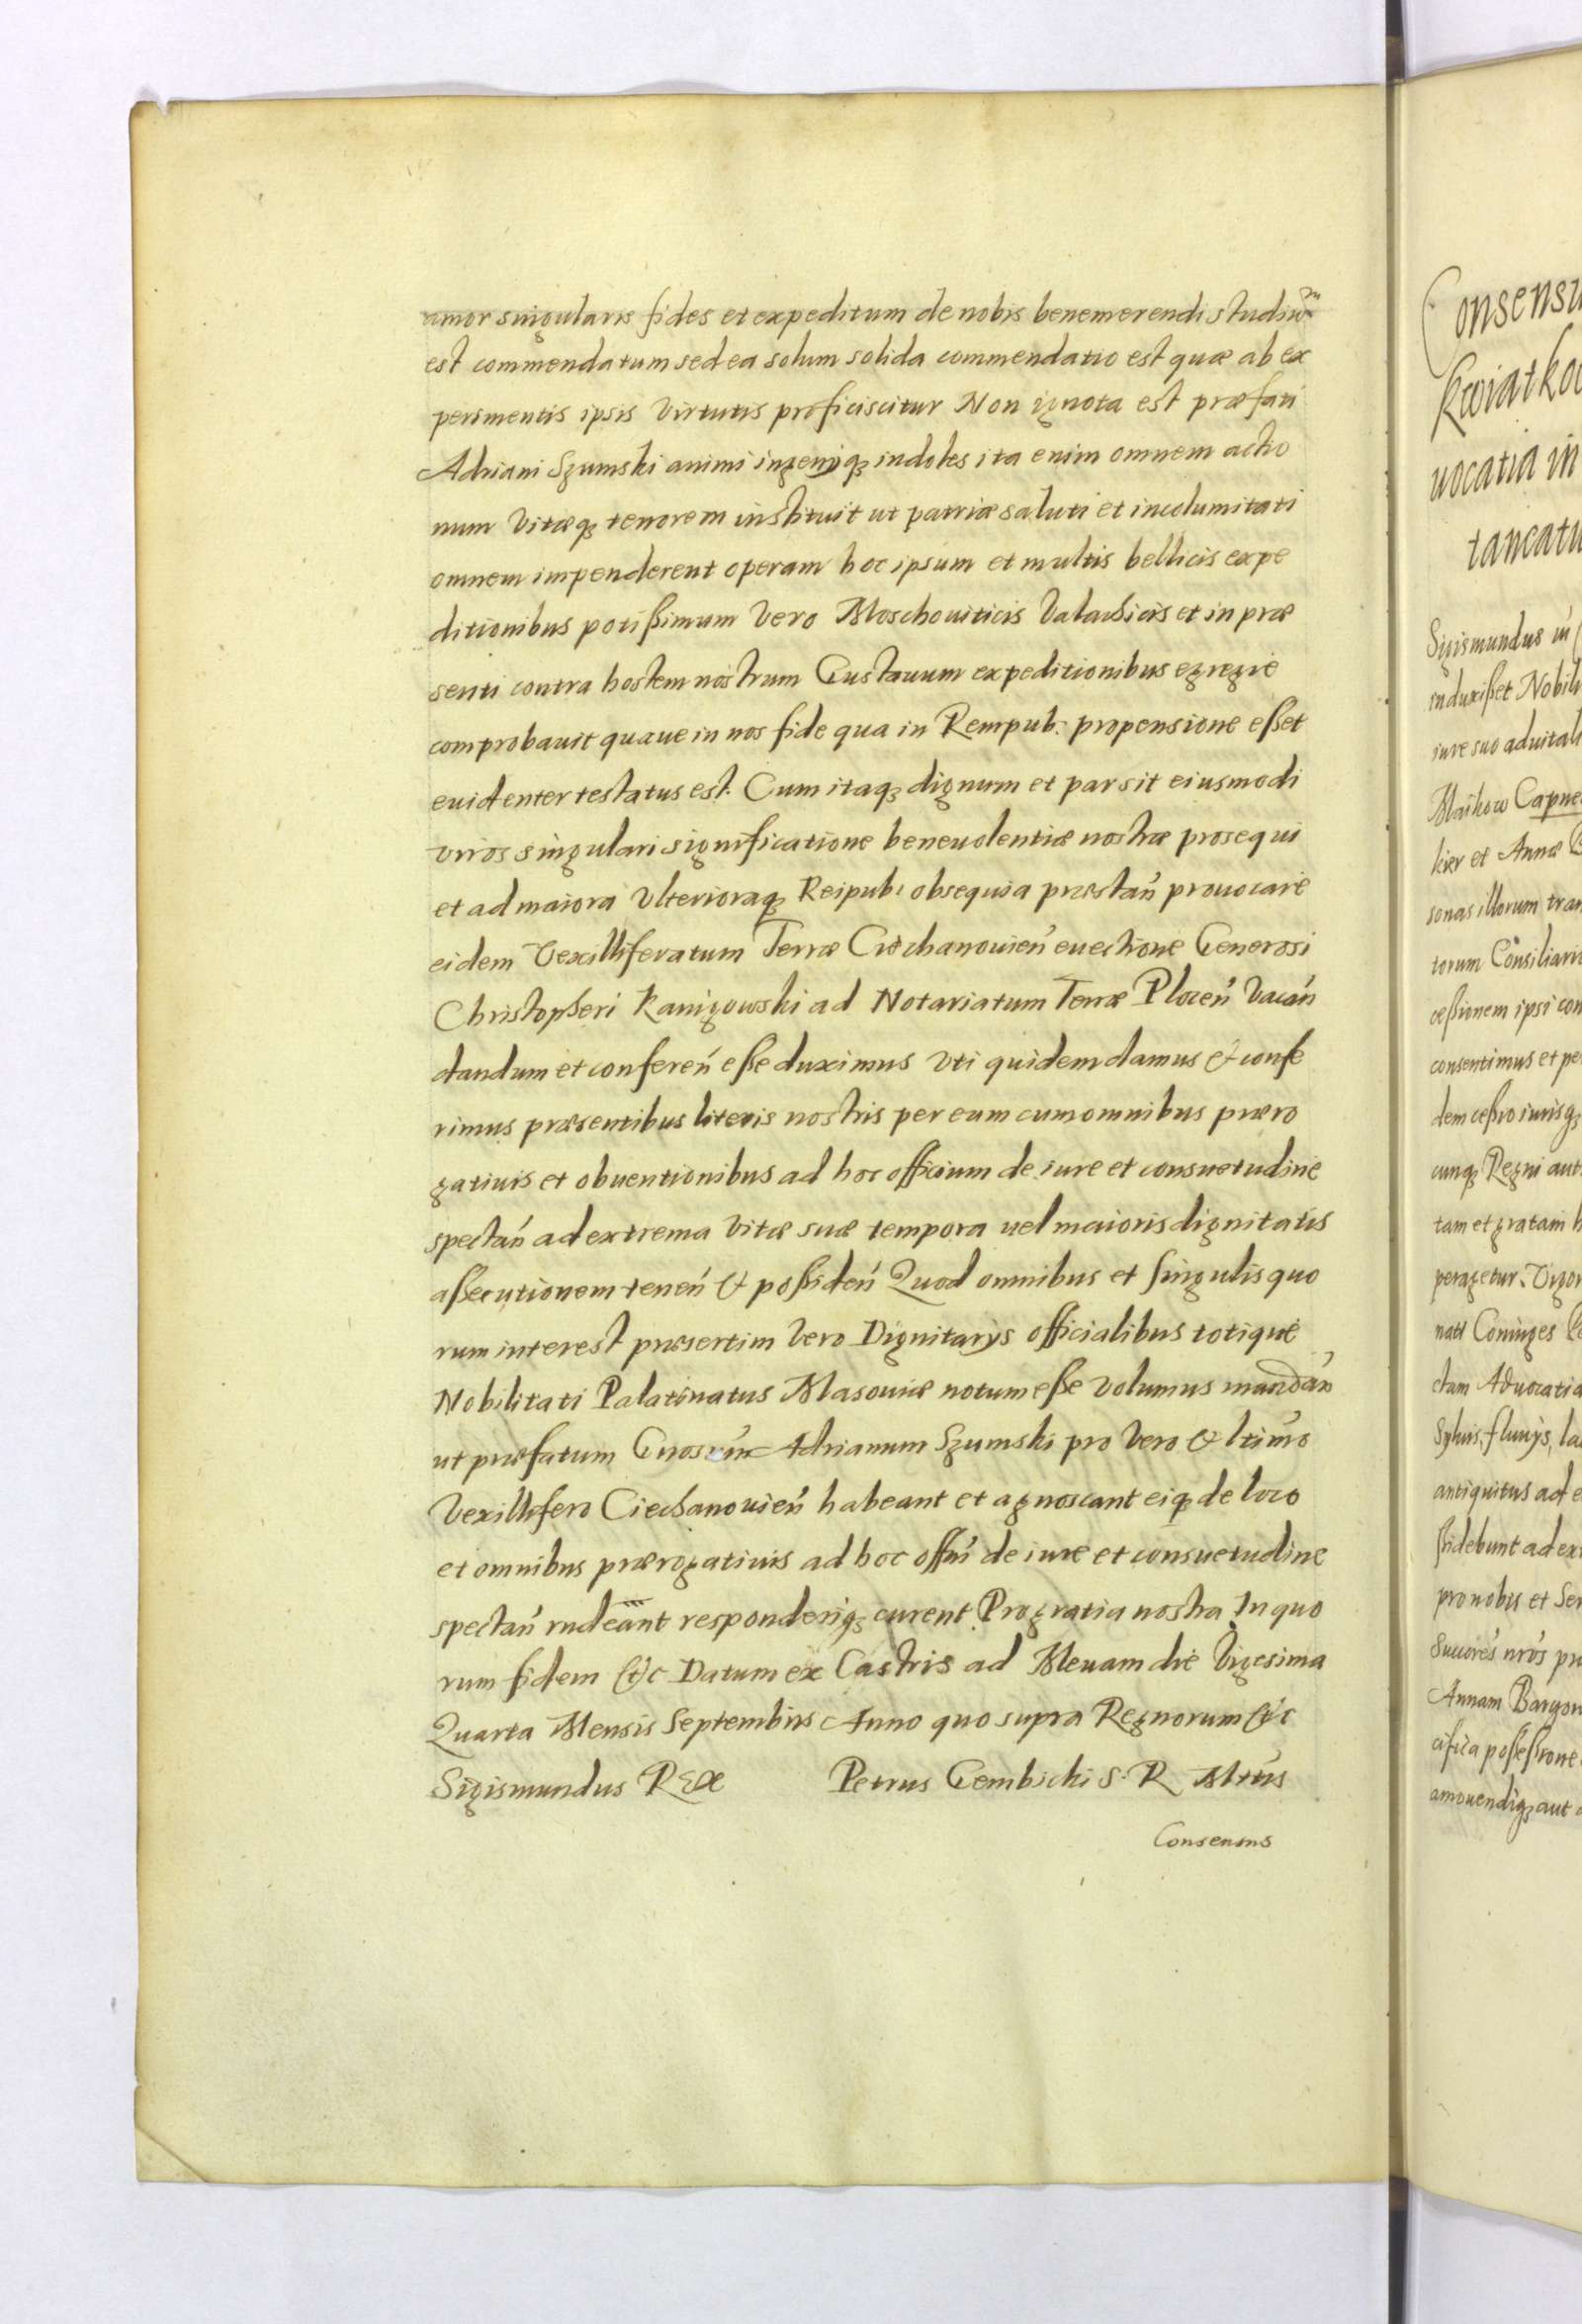 amor singularis fides et expeditum de nobis benemerendi studiũ
est commendatum sed ea solum solida commendatio est quæ ab ex
perimentis ipsis virtutis proficiscitur Non ignota est præfati
Adriani Szumski animi ingenijq; indoles ita enim omnem actio
num vitæq; tenorem instituit ut patriæ saluti et incolumitati
omnem impenderent operam hoc ipsum et multis bellicis expe
ditionibus potißimum vero Moschouiticis Valachicis et in præ
senti contra hostem nostrum Gustauum expeditionibus egregie
comprobauit quaue in nos fide qua in Rempub: propensione eßet
euidenter testatus est. Cum itaq; dignum et par sit eiusmodi
viros singulari significatione beneuolentiæ nostræ prosequi
et ad maiora vlterioraq; Reipub: obsequia præstań prouocare
eidem Vexilliferatum Terræ Ciechanouień euectione Generosi
Christopheri Kanigowski ad Notariatum Terræ Ploceń vacań
dandum et confereń eße duximus vti quidem damus & confe
rimus præsentibus literis nostris per eum cum omnibus præro
gatiuis et obuentionibus ad hoc officium de iure et consuetudine
spectań ad extrema vitæ suæ tempora uel maioris dignitatis
aßecutionem teneń & poßideń Quod omnibus et singulis quo
rum interest præsertim vero Dignitarijs officialibus totique
Nobilitati Palatinatus Masouiæ notum eße volumus mandań
ut præfatum Gnosum Adrianum Szumski pro vero & ltimo
Vexillifero Ciechanouień habeant et agnoscant eiq; de loco
et omnibus prærogatiuis ad hoc offm de iure et consuetudine
spectań rndeant responderiq; curent Pro gratia nostra In quo
rum fidem &c Datum ex Castris ad Meuam die Vigesima
Quarta Mensis Septembris Anno quo supra Regnorum &c
Sigismundus Rex Petrus Gembicki S. R. Mtis
Consensus
Consensu
Kwiatkow
uocatia in
tancatu
Sigismundus in
induxißet Nobili
iure suo aduitali
Maikow Capne
kier et Annæ
sonas illorum tran
torum Consiliario
ceßionem ipsi con
consentimus et pe
dem ceßio iurisq;
cunq; Regni aut
tam et gratam h
peragetur. Vigor
nati Coniuges
ctam Aduocatia
Syluis, fluuijs, la
antiquitus ad e
ßidebunt ad ex
pro nobis et Ser
Succores nros pr
Annam Bargon
cifica poßeßione
amouendiq; aut